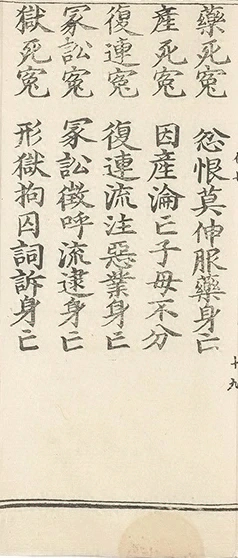 藥死寃　忿恨莫伸服藥身亡
產死寃　因產淪亡子母不分
復連寃　復連流注惡業身亡
冢訟寃　冢訟徵呼流逮身亡
獄死寃　形獄拘囚詞訴身亡
十九